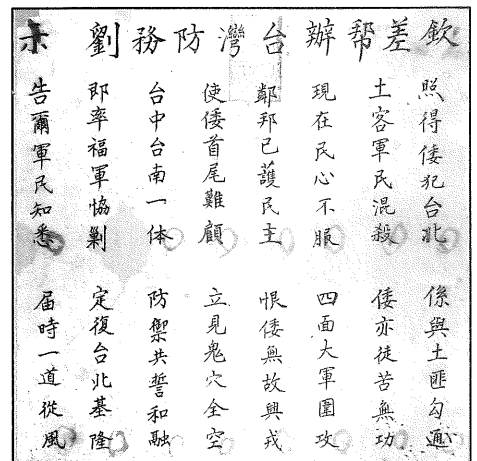 欽差幇辦台灣防務劉示
照得倭犯台北 係與土匪勾通
土客軍民混殺 倭亦徒苦無功
現在民心不服 四面大軍圍攻
鄰邦已護民主 恨倭無故興戎
使倭首尾難顧 立見鬼穴全空
台中台南一体 防禦共誓和融
即率福軍協剿 定復台北基隆
告爾軍民知悉 届時一道從風